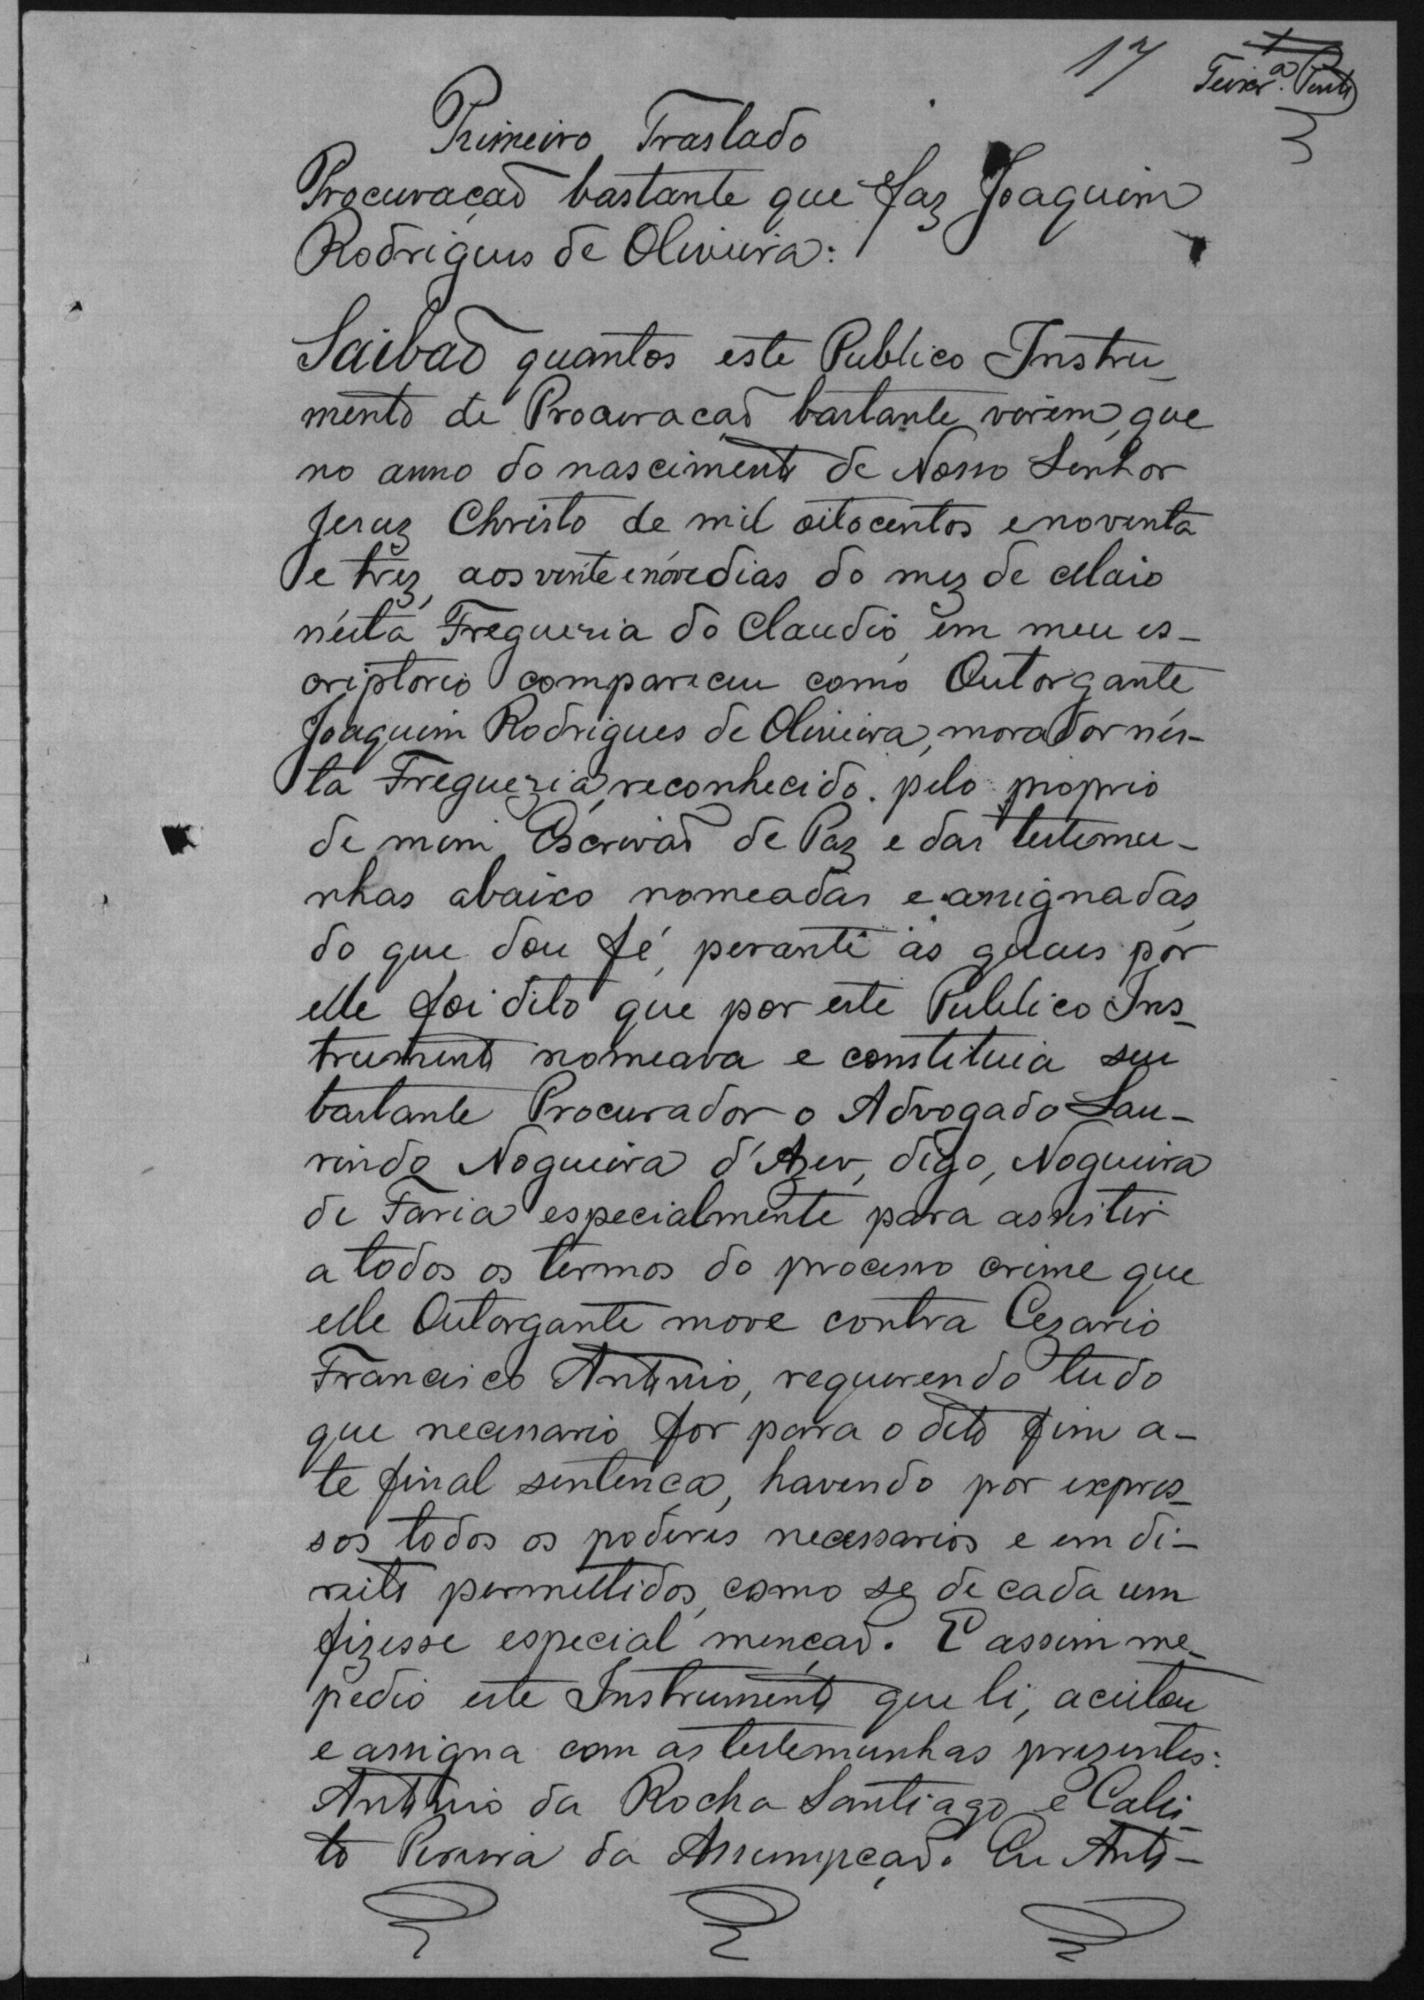 17
Teixr.ª
Primeiro Traslado
Procuração bastante que faz Joaquim
Rodrigues de Oliveira:
Saibão quantos este Publico Instru-
mento de Procuração bastante virem, que
no anno do nascimento de Nosso Senhor
Jesuz Christo de mil oitocentos e noventa
e trez, aos vinte e nóve dias do mez de Maio
nésta Freguezia do Claudio, em meu es-
criptorio compareceu como Outorgante
Joaquim Rodrigues de Oliveira, morador nés-
ta Freguezia, reconhecido pelo proprio
de mim Escrivão de Paz e das testemu-
nhas abaixo nomeadas e assignadas,
do que dou fé, perante as quaes por
elle foi dito que por este Publico Ins-
trumento nomeava e constituia seu
bastante Procurador o Advogado Lau-
rindo Nogueira d'Azev, digo, Nogueira
de Faria especialmente para assistir
a todos os termos do processo crime que
elle Outorgante move contra Cezario
Francisco Antonio, requerendo tudo
que necessario for para o dito fim a-
te final sentença, havendo por expres-
sos todos os poderes necessarios e em di-
reito permettidos, como se de cada um
fizesse especial menção. E assim me
pedio este Instrumento que li, aceitou
e assigna com as testemunhas prezentes:
Antonio da Rocha Santiago e Calis-
to Pereira da Assumpção. Eu Anto-